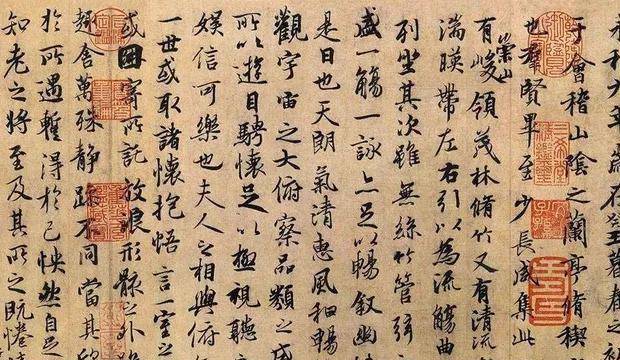 永和九年歲在癸丑暮春之初
于會稽山陰之蘭亭脩稧
也羣賢畢至少長咸集此
有崇山峻領茂林脩竹又有清流
湍暎帶左右引以為流觴曲
列坐其次雖無絲竹管弦
盛一觴一詠亦足以暢敘幽
是日也天朗氣清惠風和暢
觀宇宙之大俯察品類之盛
所以遊目騁懷足以極視聽之
娛信可樂也夫人之相與俯
一世或取諸懷抱悟言一室之
或因寄所託放浪形骸之外雖
趣舍萬殊靜躁不同當其欣
於所遇暫得於己怏然自足
知老之將至及其所之既惓